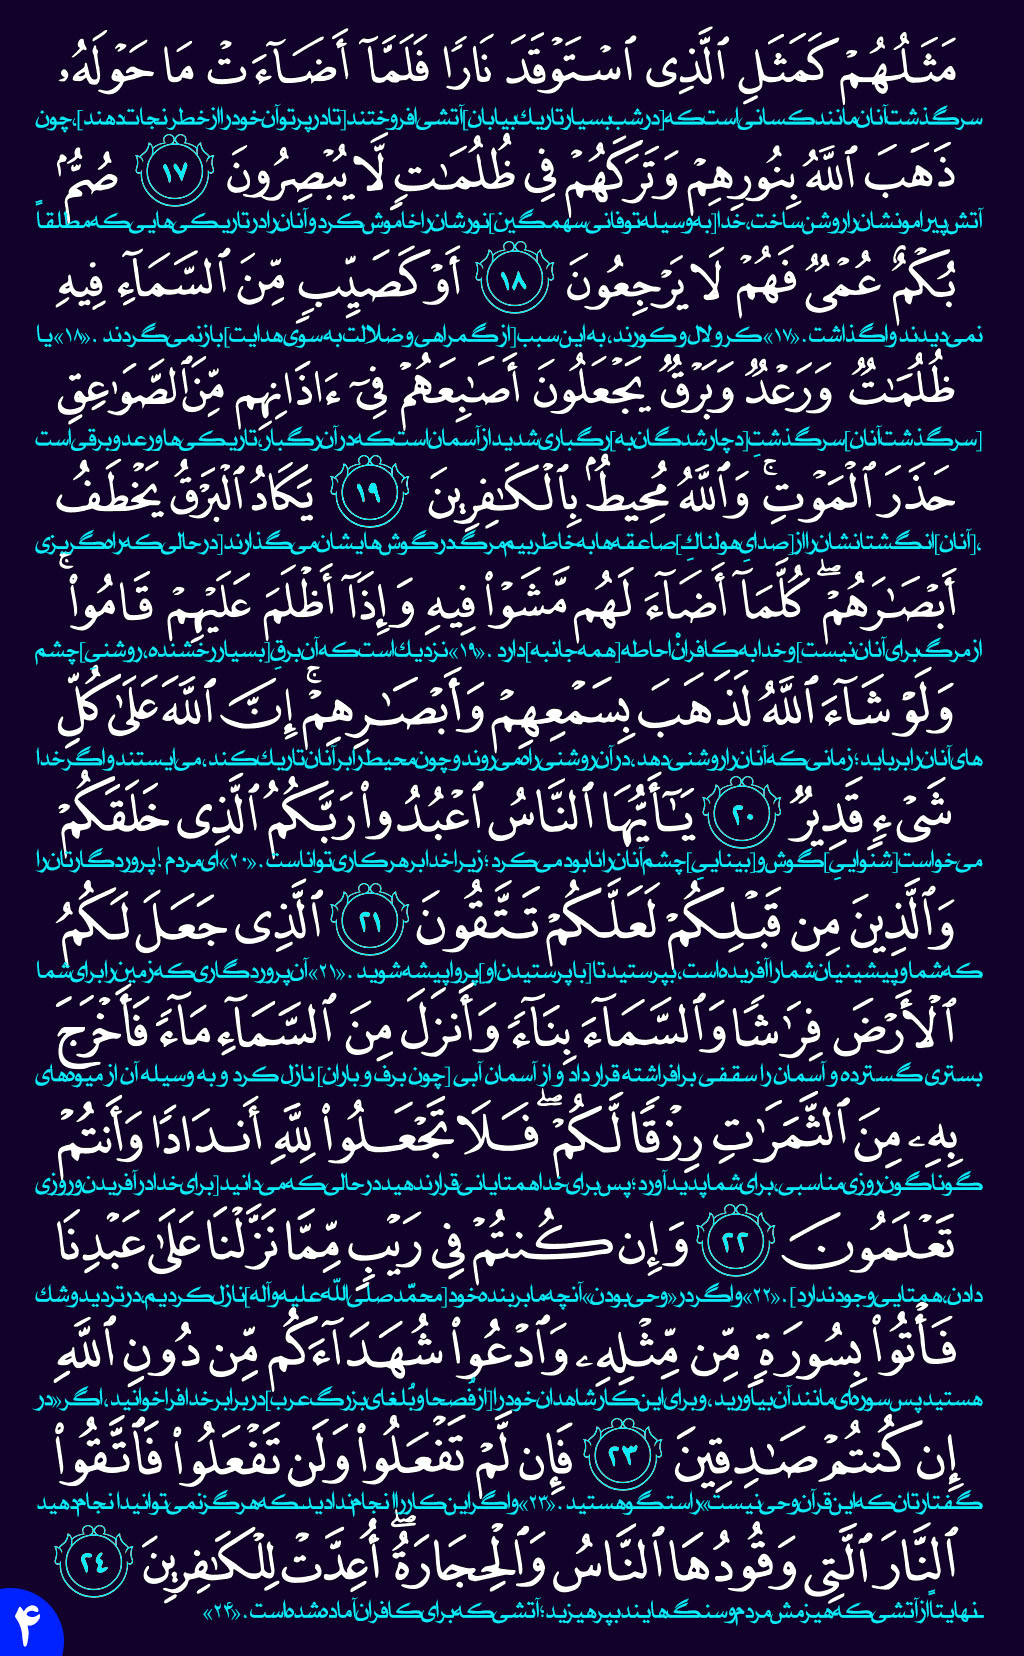 مَثَلُهُمْ كَمَثَلِ ٱلَّذِى ٱسْتَوْقَدَ نَارًا فَلَمَّآ أَضَآءَتْ مَا حَوْلَهُۥ
سرگذشت آنان مانند کسانی است که [در شب بسیار تاریک بیابان] آتشی افروختند [تا در پرتو آن خود را از خطر نجات دهند]، چون
ذَهَبَ ٱللَّهُ بِنُورِهِمْ وَتَرَكَهُمْ فِى ظُلُمَـٰتٍ لَّا يُبْصِرُونَ ١٧ صُمٌّۢ
آتش پیرامونشان را روشن ساخت، خدا [به وسیله توفانی سهمگین] نورشان را خاموش کرد و آنان را در تاریکی هایی که مطلقاً
بُكْمٌ عُمْىٌ فَهُمْ لَا يَرْجِعُونَ ١٨ أَوْ كَصَيِّبٍ مِّنَ ٱلسَّمَآءِ فِيهِ
نمی دیدند واگذاشت. «۱۷» کر و لال و کورند، به این سبب [از گمراهی و ضلالت به سوی هدایت] باز نمی گردند. «۱۸» یا
ظُلُمَـٰتٌ وَرَعْدٌ وَبَرْقٌ يَجْعَلُونَ أَصَـٰبِعَهُمْ فِىٓ ءَاذَانِهِم مِّنَ ٱلصَّوَٰعِقِ
[سرگذشت آنان] سرگذشتِ [دچارشدگان به] رگباری شدید از آسمان است که در آن رگبار، تاریکی ها و رعد و برقی است
حَذَرَ ٱلْمَوْتِ ۚ وَٱللَّهُ مُحِيطٌۢ بِٱلْكَـٰفِرِينَ ١٩ يَكَادُ ٱلْبَرْقُ يَخْطَفُ
، [آنان] انگشتانشان را از [صدایِ هولناکِ] صاعقه ها به خاطر بیم مرگ در گوش هایشان می گذارند [در حالی که راه گریزی
أَبْصَـٰرَهُمْ ۖ كُلَّمَآ أَضَآءَ لَهُم مَّشَوْا۟ فِيهِ وَإِذَآ أَظْلَمَ عَلَيْهِمْ قَامُوا۟ ۚ
از مرگ برای آنان نیست] و خدا به کافرانْ احاطه [همه جانبه] دارد. «۱۹» نزدیک است که آن برقِ [بسیار رخشنده، روشنیِ] چشم
وَلَوْ شَآءَ ٱللَّهُ لَذَهَبَ بِسَمْعِهِمْ وَأَبْصَـٰرِهِمْ ۚ إِنَّ ٱللَّهَ عَلَىٰ كُلِّ
های آنان را برباید؛ زمانی که آنان را روشنی دهد، در آن روشنی راه می روند و چون محیط را بر آنان تاریک کند، می ایستند و اگر خدا
شَىْءٍ قَدِيرٌ ٢٠ يَـٰٓأَيُّهَا ٱلنَّاسُ ٱعْبُدُوا۟ رَبَّكُمُ ٱلَّذِى خَلَقَكُمْ
می خواست [شنوایی] گوش و [بیناییِ] چشم آنان را نابود می کرد؛ زیرا خدا بر هر کاری تواناست. «۲۰» ای مردم! پروردگارتان را
وَٱلَّذِينَ مِن قَبْلِكُمْ لَعَلَّكُمْ تَتَّقُونَ ٢١ ٱلَّذِى جَعَلَ لَكُمُ
که شما و پیشینیان شما را آفریده است، بپرستید تا [با پرستیدن او] پروا پیشه شوید. «۲۱» آن پروردگاری که زمین را برای شما
ٱلْأَرْضَ فِرَٰشًا وَٱلسَّمَآءَ بِنَآءً وَأَنزَلَ مِنَ ٱلسَّمَآءِ مَآءً فَأَخْرَجَ
بستری گسترده و آسمان را سقفی برافراشته قرار داد و از آسمان آبی [چون برف و باران] نازل کرد و به وسیله آن از میوه های
بِهِۦ مِنَ ٱلثَّمَرَٰتِ رِزْقًا لَّكُمْ ۖ فَلَا تَجْعَلُوا۟ لِلَّهِ أَندَادًا وَأَنتُمْ
گوناگون روزی مناسبی، برای شما پدید آورد؛ پس برای خدا همتایانی قرار ندهید در حالی که می دانید [برای خدا در آفریدن و روزی
تَعْلَمُونَ ٢٢ وَإِن كُنتُمْ فِى رَيْبٍ مِّمَّا نَزَّلْنَا عَلَىٰ عَبْدِنَا
دادن، همتایی وجود ندارد]. «۲۲» و اگر در «وحی بودن» آنچه ما بر بنده خود [محمّد صلی اللّه علیه و آله] نازل کردیم، در تردید و شک
فَأْتُوا۟ بِسُورَةٍ مِّن مِّثْلِهِۦ وَٱدْعُوا۟ شُهَدَآءَكُم مِّن دُونِ ٱللَّهِ
هستید پس سوره ای مانند آن بیاورید، و برای این کار شاهدان خود را [از فُصحا و بُلغای بزرگ عرب] در برابر خدا فرا خوانید، اگر «در
إِن كُنتُمْ صَـٰدِقِينَ ٢٣ فَإِن لَّمْ تَفْعَلُوا۟ وَلَن تَفْعَلُوا۟ فَٱتَّقُوا۟
گفتارتان که این قرآن وحی نیست» راستگو هستید. «۲۳» و اگر این کار را انجام ندادید که هرگز نمی توانید انجام دهید
ٱلنَّارَ ٱلَّتِى وَقُودُهَا ٱلنَّاسُ وَٱلْحِجَارَةُ ۖ أُعِدَّتْ لِلْكَـٰفِرِينَ ٢٤
نهایتاً از آتشی که هیزمش مردم و سنگ هایند بپرهیزید؛ آتشی که برای کافران آماده شده است. «۲۴»
۴